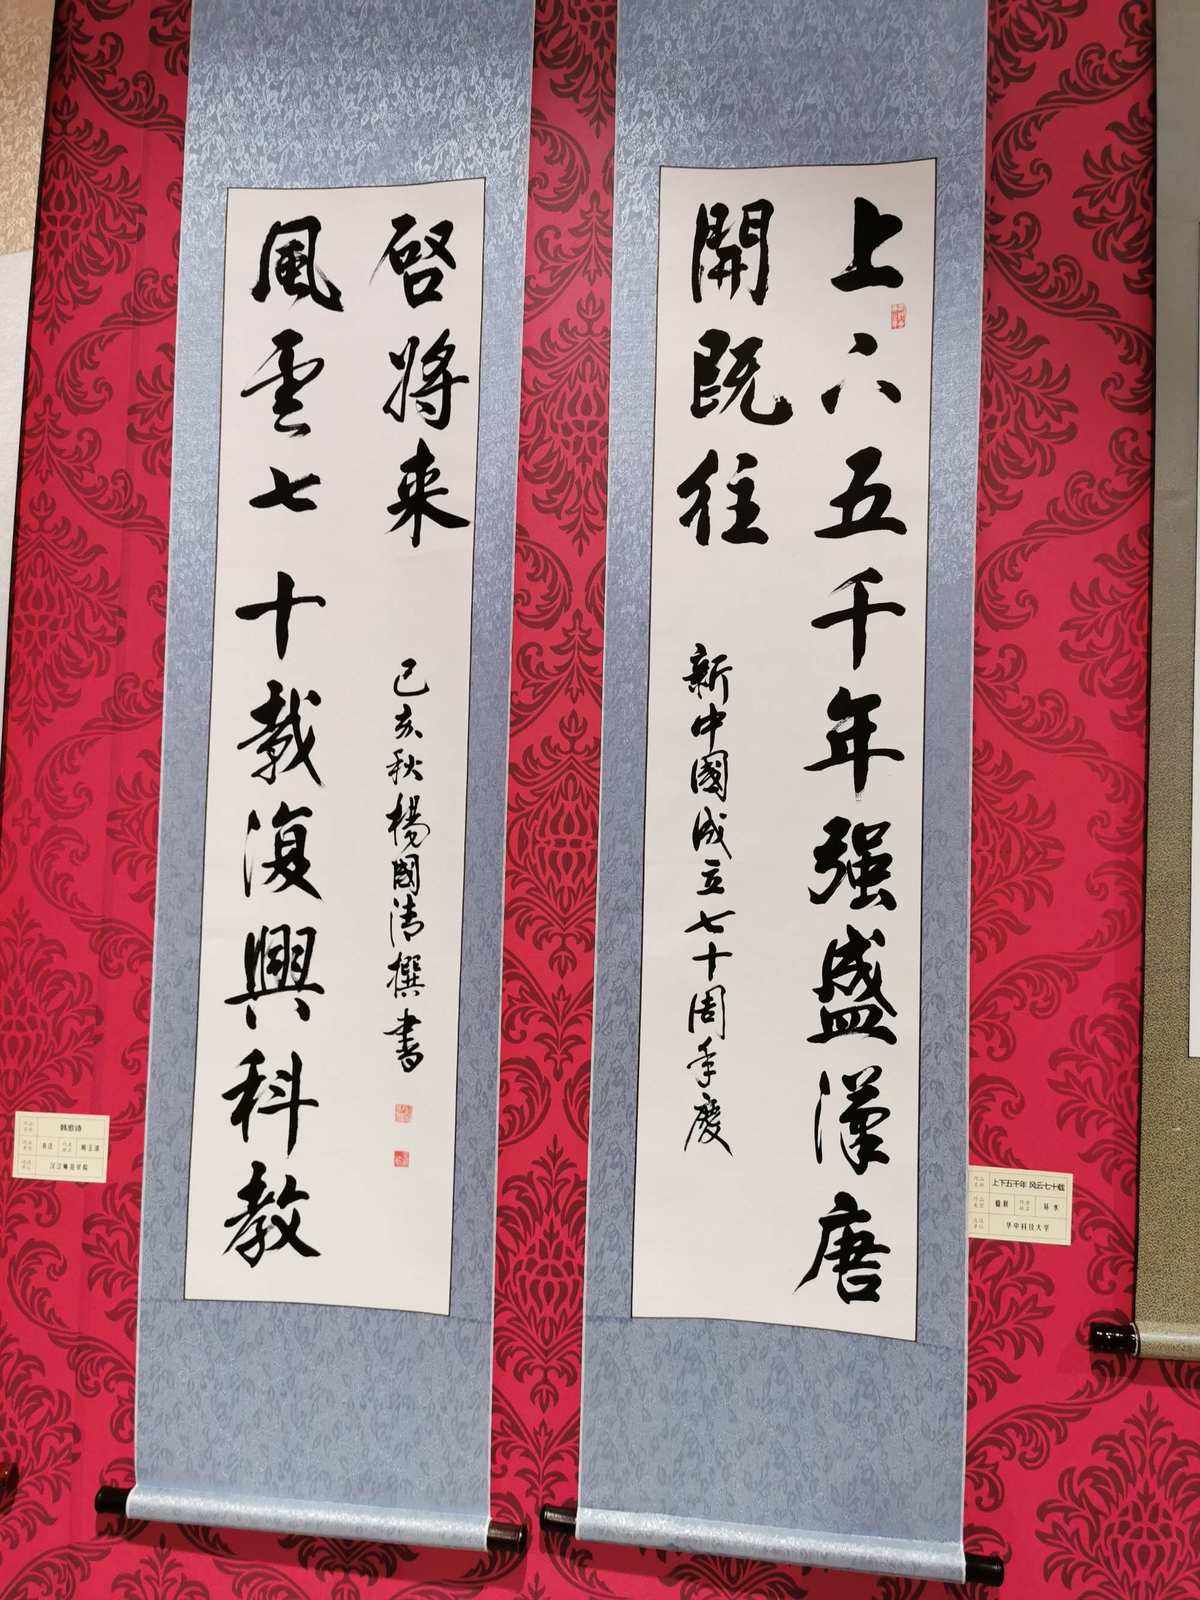 上下五千年强盛漢唐
開既往
新中國成立七十周年慶
風雲七十載復興科教
啓将来
己亥秋楊國清撰書
上下五千年 风云七十载
楹联
华中科技大学
韩愈诗
书法
汉江师范学院